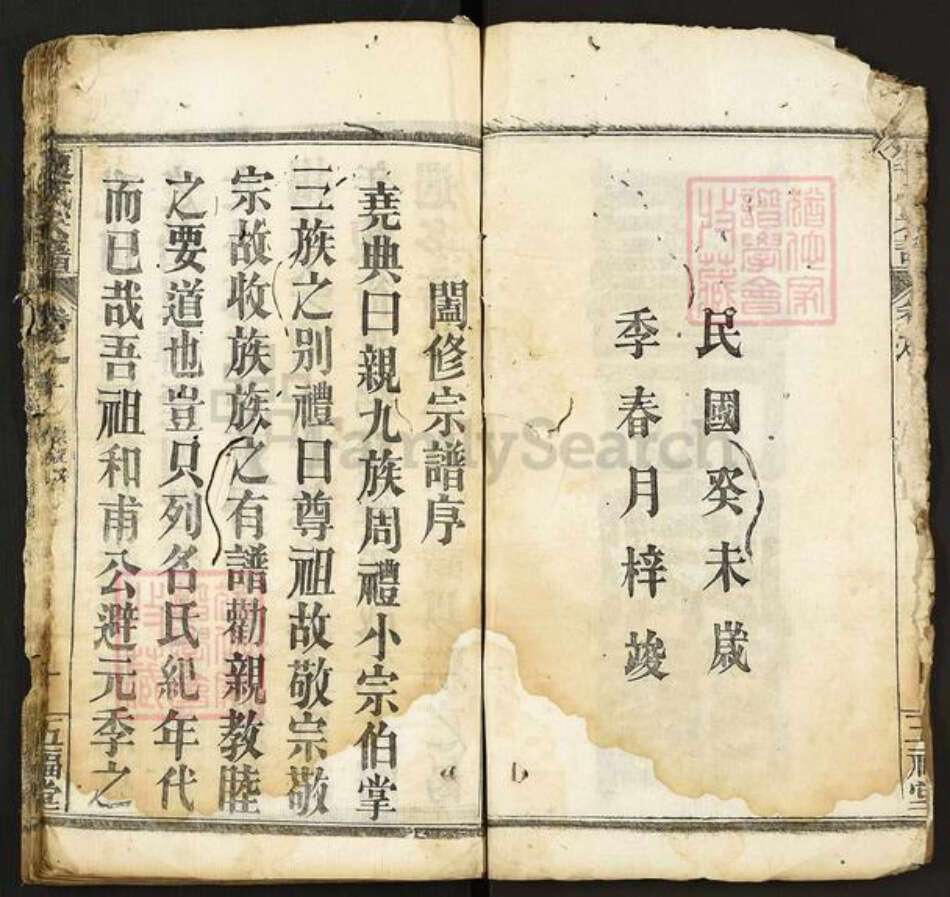 民國癸未歲
季春月梓竣
闔修宗譜序
堯典曰親九族周禮小宗伯掌
三族之別禮曰尊祖故敬宗敬
宗故收族族之有譜勸親教睦
之要道也豈只列名氏紀年代
而已哉吾祖和甫公避元季之
五福堂
FamilySearch